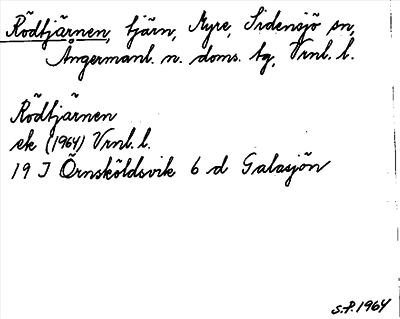 Rödtjärnen, tjärn, Myre, Sidensjö sn,
Ångermanl. n. doms. tg, Vrnl. l.
Rödtjärnen
ek (1964) Vrnl. l.
19 J Örnsköldsvik 6 d Galasjön
S.P. 1964